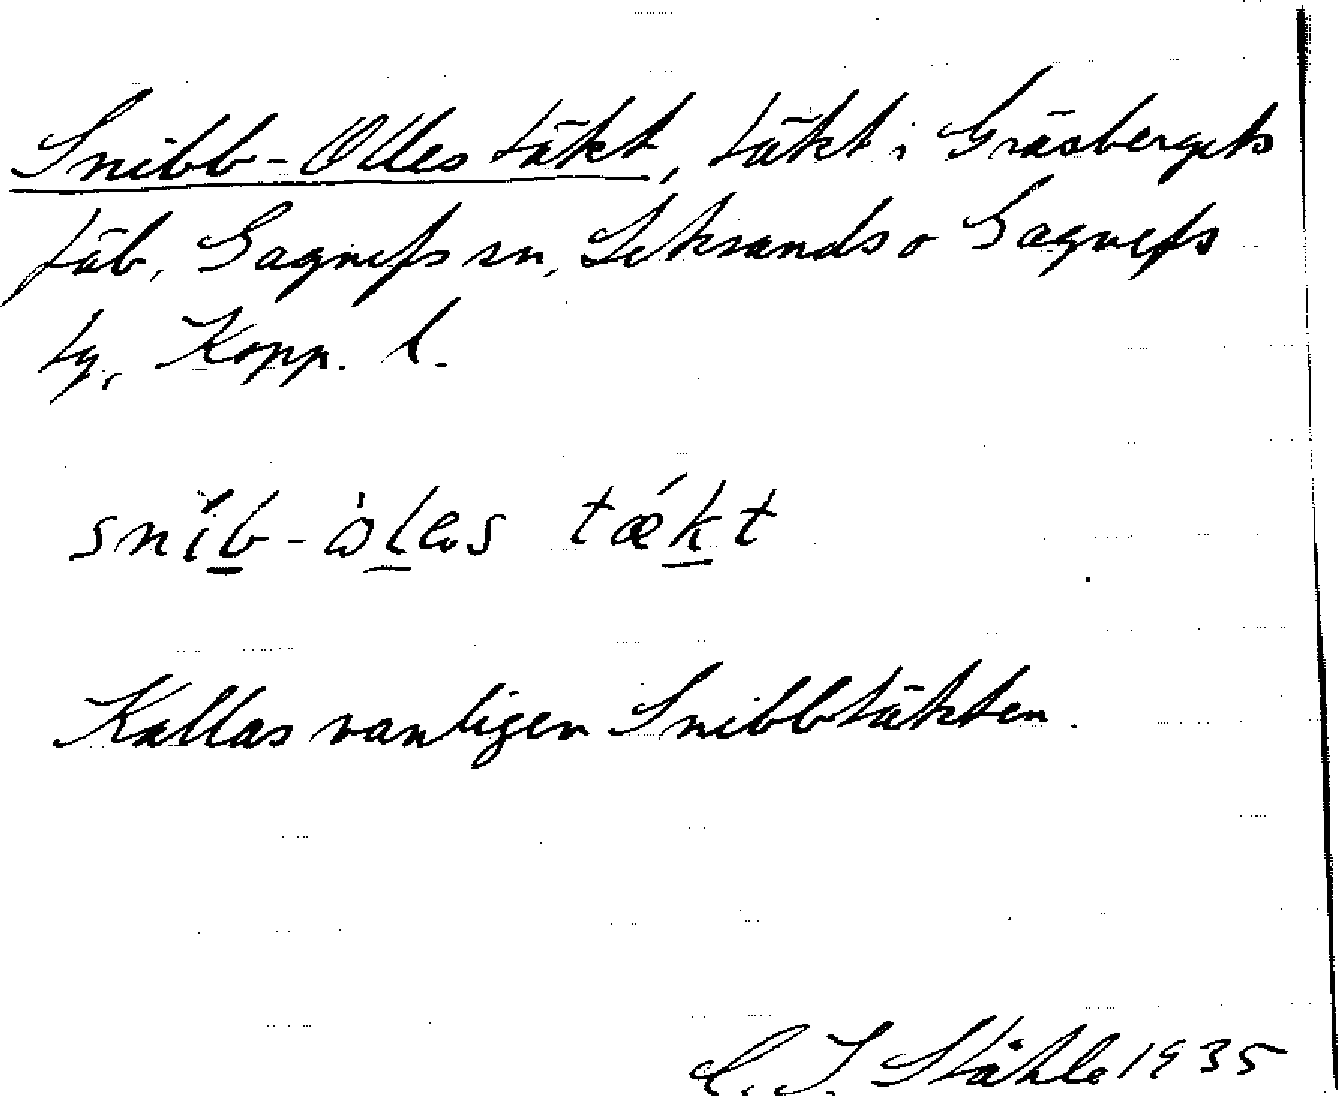 Snibb-Olles täkt, täkt i Gräsbergets
fäb, Gagnefs sn, Leksands o Gagnefs
tg, Kopp. l.
snib-òlas tækt
Kallas vanligen Snibbtäkten.
C. I. Ståhle 1935